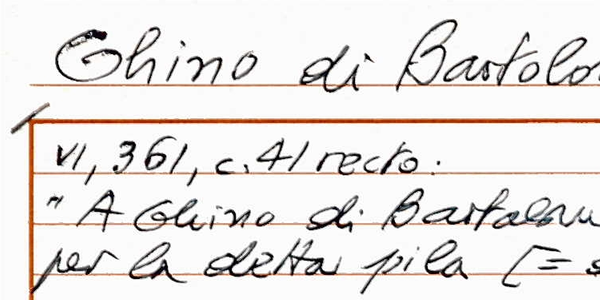 Ghino di Bartolo
VI, 361, c. 41 recto:
" A Ghino di Bartalom
per la detta pila [= s